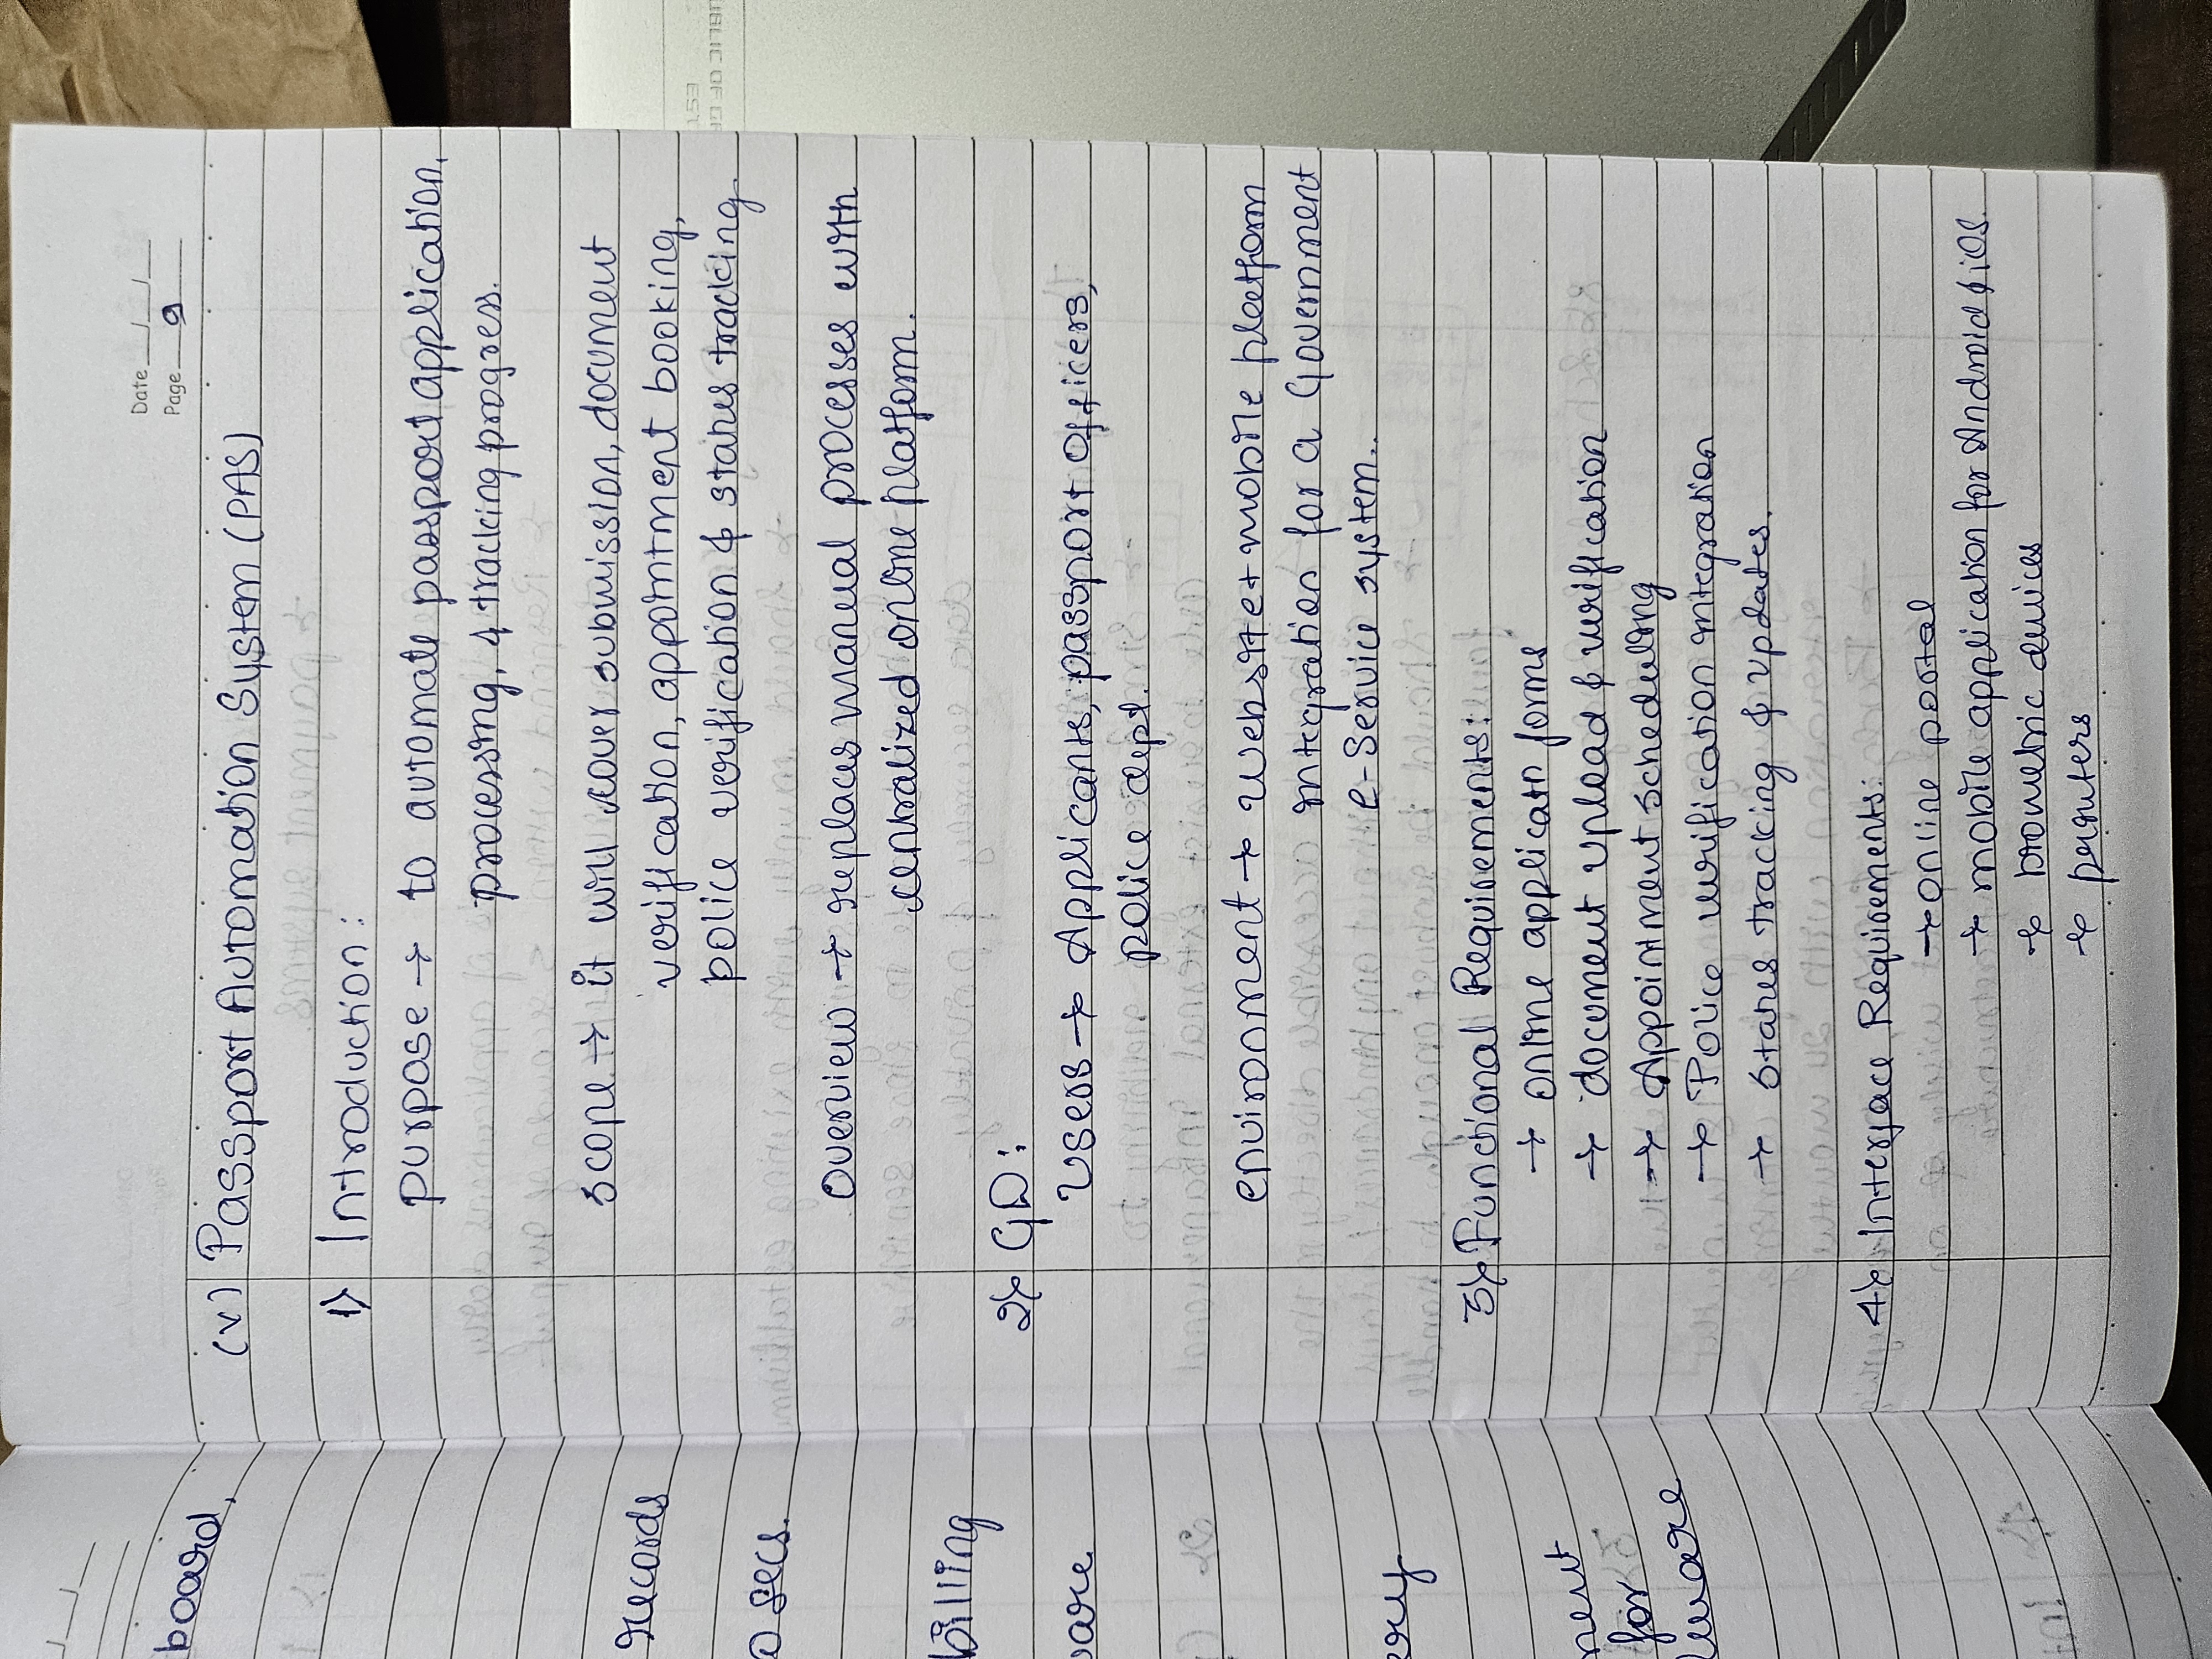 board,
records
0 secs.
billing
ware
ery
ment
for
Date __/__/__
Page 9
(v) Passport Automation System (PAS)
1) Introduction:
purpose → to automate passport application,
processing, & tracking progress.
scope → it will cover submission, document
verification, appointment booking,
police verification & status tracking.
overview → replaces manual processes with
centralized online platform.
2) GD:
Users → Applicants, passport officers,
police dept.
environment → Website + mobile platform
integration for a Government
e-Service system..
3) Functional Requirements:
→ online applicatn forms
→ document upload & verification
→ Appointment scheduling
→ Police verification integration
→ status tracking & updates.
4) Interface Requirements:
→ online portal
→ mobile application for Android & iOS.
→ biometric devices
→ printers